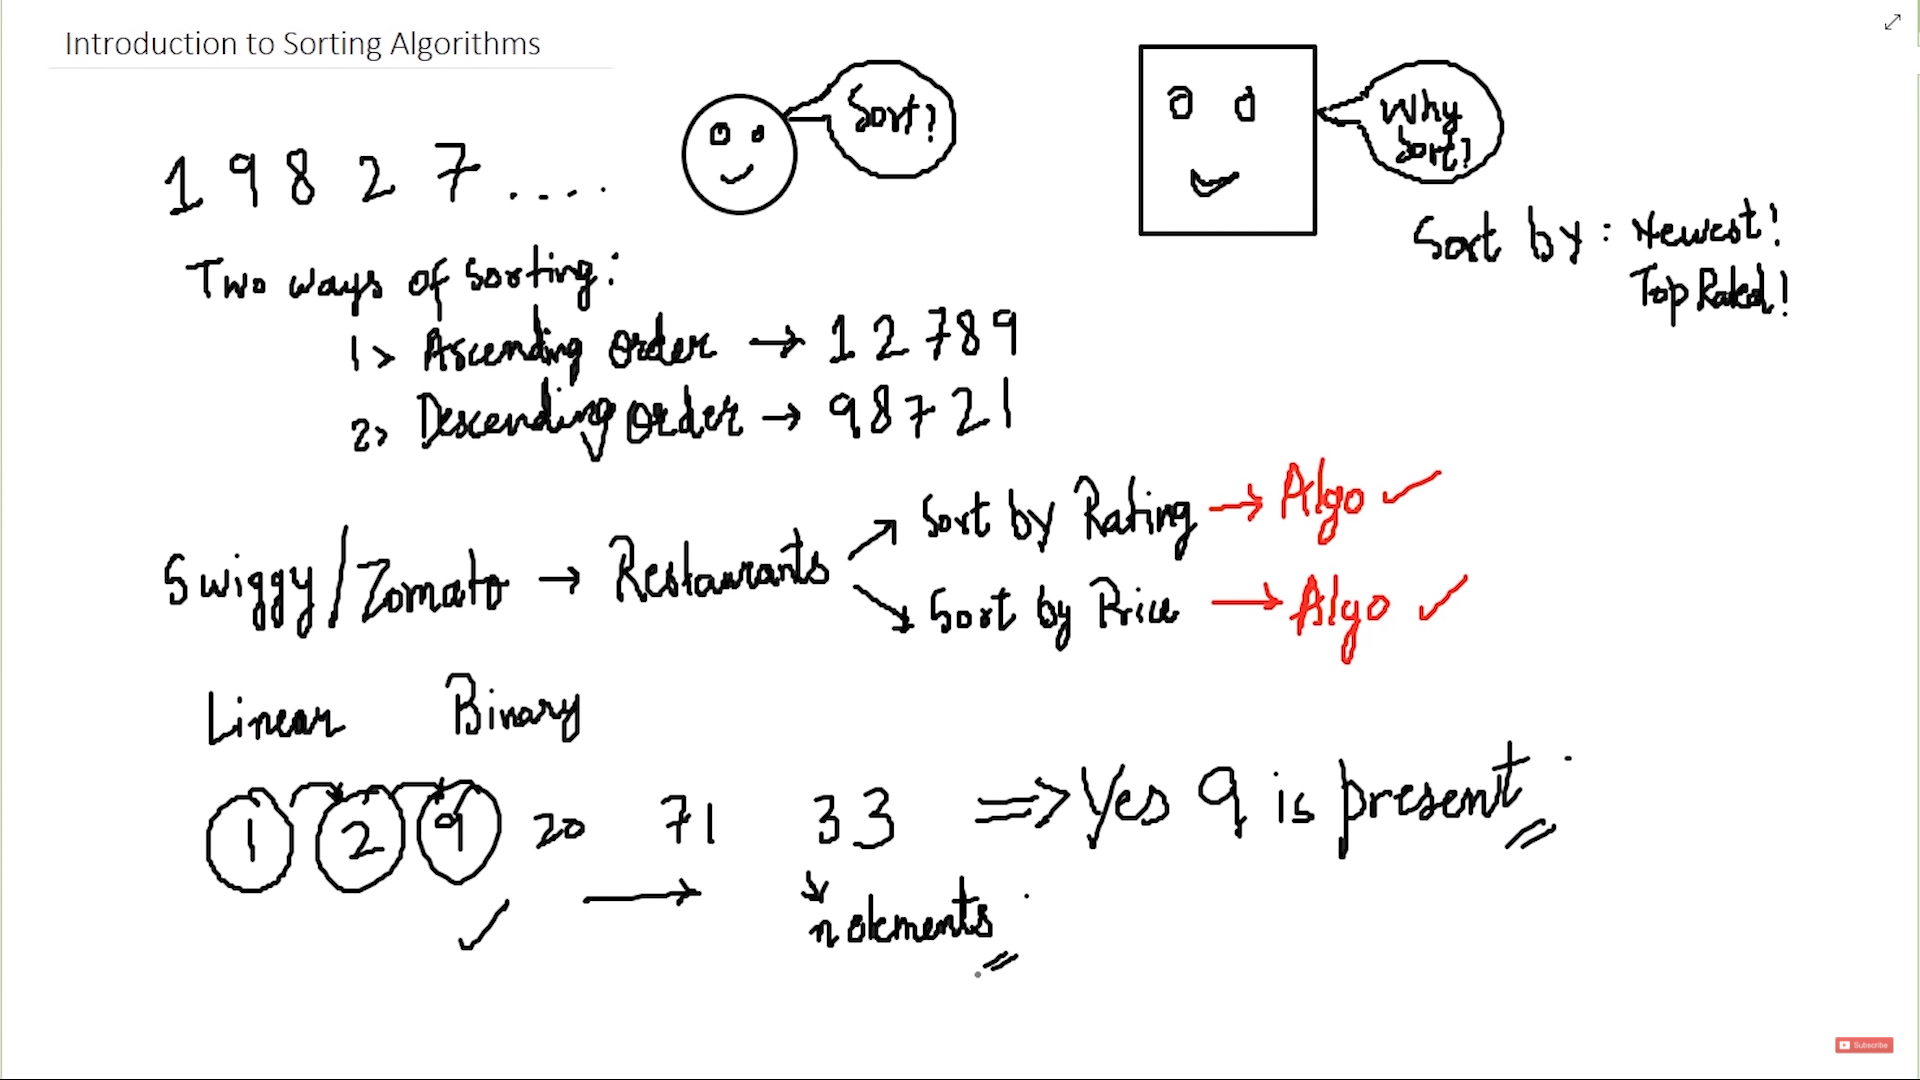 Introduction to Sorting Algorithms
Sort?
Why
Sort?
1 9 8 2 7 . . . .
Sort by : Newest!
Top Rated!
Two ways of Sorting:
1> Ascending Order → 1 2 7 8 9
2> Descending Order → 9 8 7 2 1
Swiggy/Zomato → Restaurants
Sort by Rating → Algo ✓
Sort by Price → Algo ✓
Linear Binary
1 2 9 20 71 33 ⇒ Yes 9 is present
n elements
Subscribe